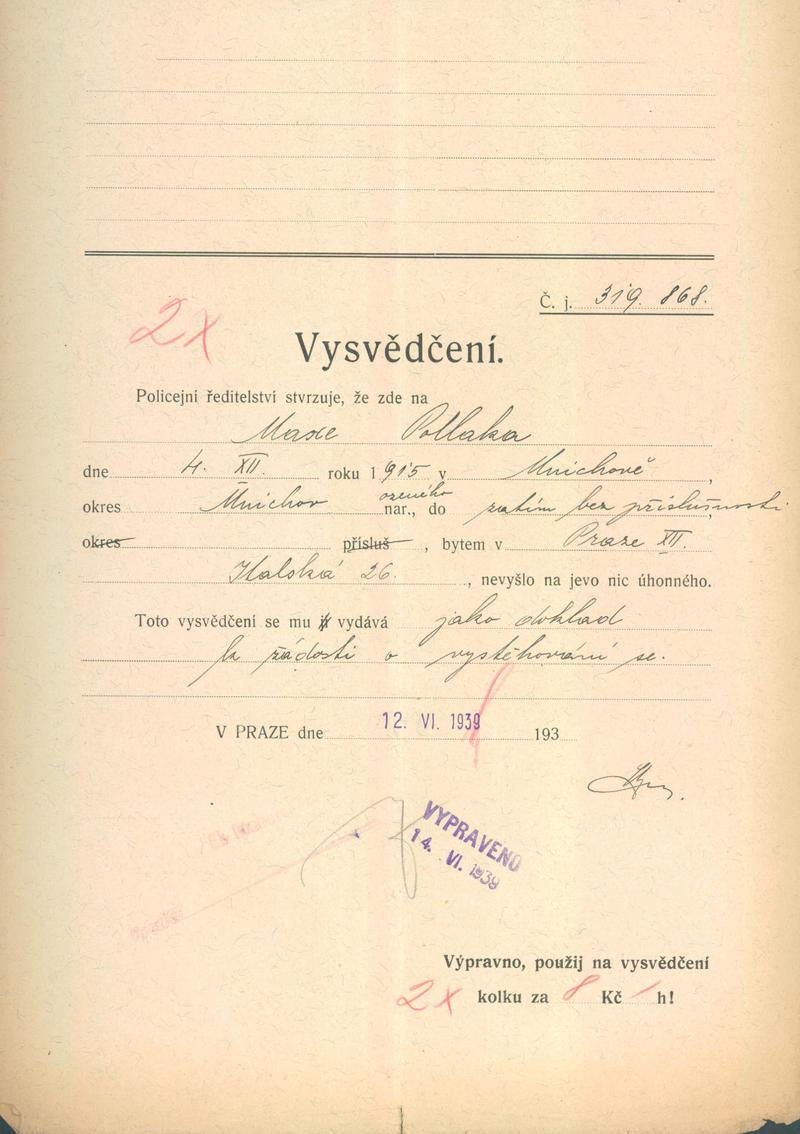 Č. j. 319.868.
2x
Vysvědčení.
Policejní ředitelství stvrzuje, že zde na
Maxe Pollaka
dne 4. XII. roku 1915 v Mnichově,
ozeného
okres Mnichov nar., do zatím bez příslušnosti
okres přísluš, bytem v Praze XII.
Italská 26., nevyšlo na jevo nic úhonného.
Toto vysvědčení se mu vydává jako doklad
k žádosti o vystěhování se.
V PRAZE dne 12. VI. 1939 193
VYPRAVENO
14. VI. 1939
Výpravno, použij na vysvědčení
2x kolku za 8 Kč h!